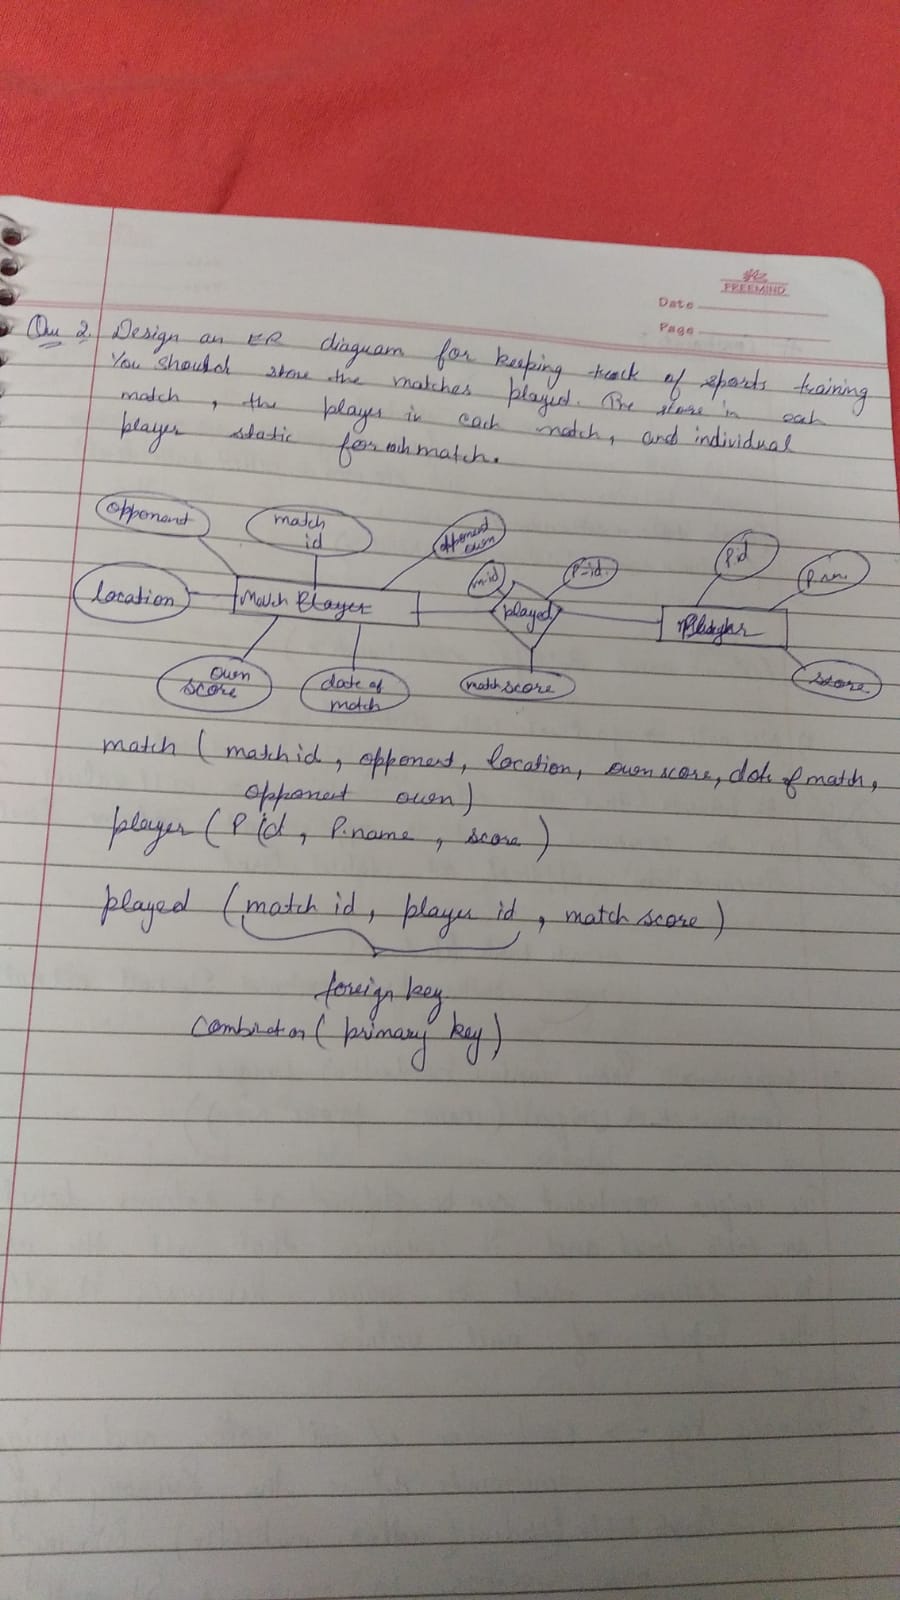 FREEMIND
Date
Page
Qu 2. Design an ER diagram for keeping track of sports training
You should store the matches played. The store in each
match, the player in each match, and individual
player static for each match.
opponent
match
id
opponent
own
m-id
P-id.
P.id
P.nm.
location
Match Player
played
Player
own
score
date of
match
match score
score
match ( match id, opponent, location, own score, date of match,
opponent own)
player ( P id, P.name, score )
played ( match id, player id, match score )
foreign key
Combination ( primary key )